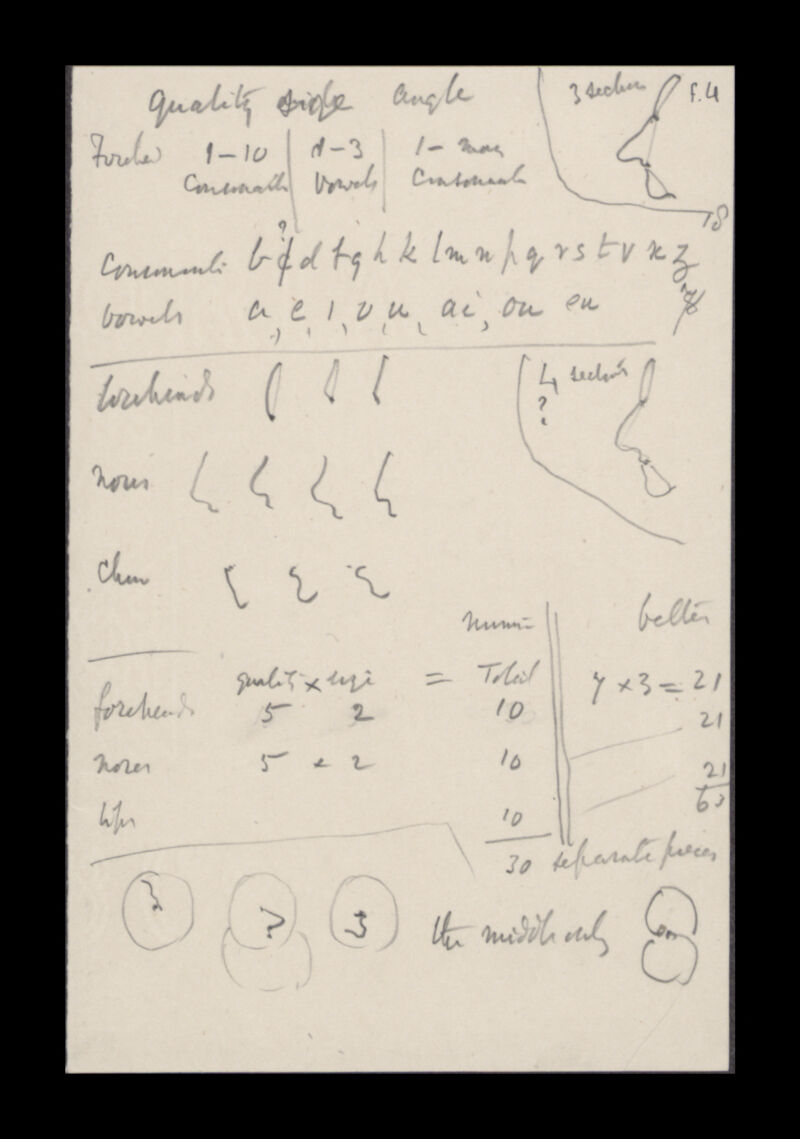 quality size angle
3 sections f.4
Forehead 1-10 | 1-3 | 1- many
Consonants Vowels Consonants
18
?
Consonants b c d f g h k l m n p q r s t v x z
Vowels a, e, i, o, u, ai, ou eu
foreheads
4 sections
?
noses
Chin
better
quality × size = Total 7 × 3 = 21
foreheads 5 2 10 21
noses 5 × 2 10 21
63
lips 10
30 separate pieces
the middle only